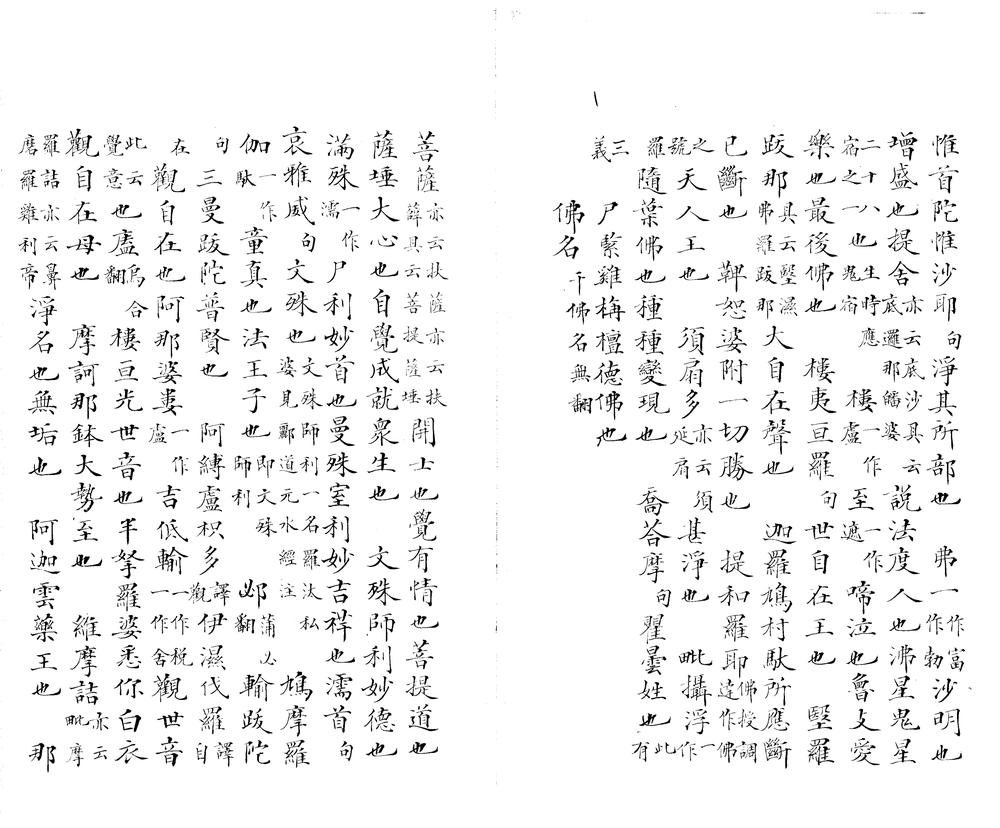 惟首陀惟沙耶句淨其所部也　弗一作富一作勃沙明也
增盛也提舍亦云底沙具云底邏那皤婆說法度人也沸星鬼星
二十八宿之一也生時應鬼宿　樓一作盧至一作遮啼泣也魯攴愛
樂也最後佛也　樓夷亘羅句世自在王也　墅羅
跋那具云墅濕弗羅跋那大自在聲也　迦羅鳩村馱所應斷
已斷也　鞞恕婆附一切勝也　提和羅耶佛授調達作佛
之號天人王也　須扇多亦云須延扇甚淨也　毗攝浮一作
羅隨葉佛也種種變現也　喬荅摩句瞿曇姓也此有
三義　尸繫雞栴檀德佛也
佛名千佛名無翻
菩薩亦云扶薩亦云扶薛具云菩提薩埵開士也覺有情也菩提道也
薩埵大心也自覺成就衆生也　文殊師利妙德也
滿殊一作濡尸利妙首也曼殊室利妙吉祥也濡首句
哀雅威句文殊也文殊師利一名羅汰私婆見酈道元水經注　鳩摩羅
伽一作馱童真也法王子也即文殊師利　邲蒲必翻輸跋陀
句三曼跋陀普賢也　阿縛盧枳多譯觀伊濕伐羅譯自
在觀自在也阿那婆婁一作盧吉低輸一作税一作舍觀世音
此云覺意也廅烏合翻樓亘光世音也半拏羅婆悉你白衣
觀自在母也　摩訶那鉢大勢至也　維摩詰亦云毗摩
羅詰亦云鼻磨羅雞利帝淨名也無垢也　阿迦雲藥王也　那